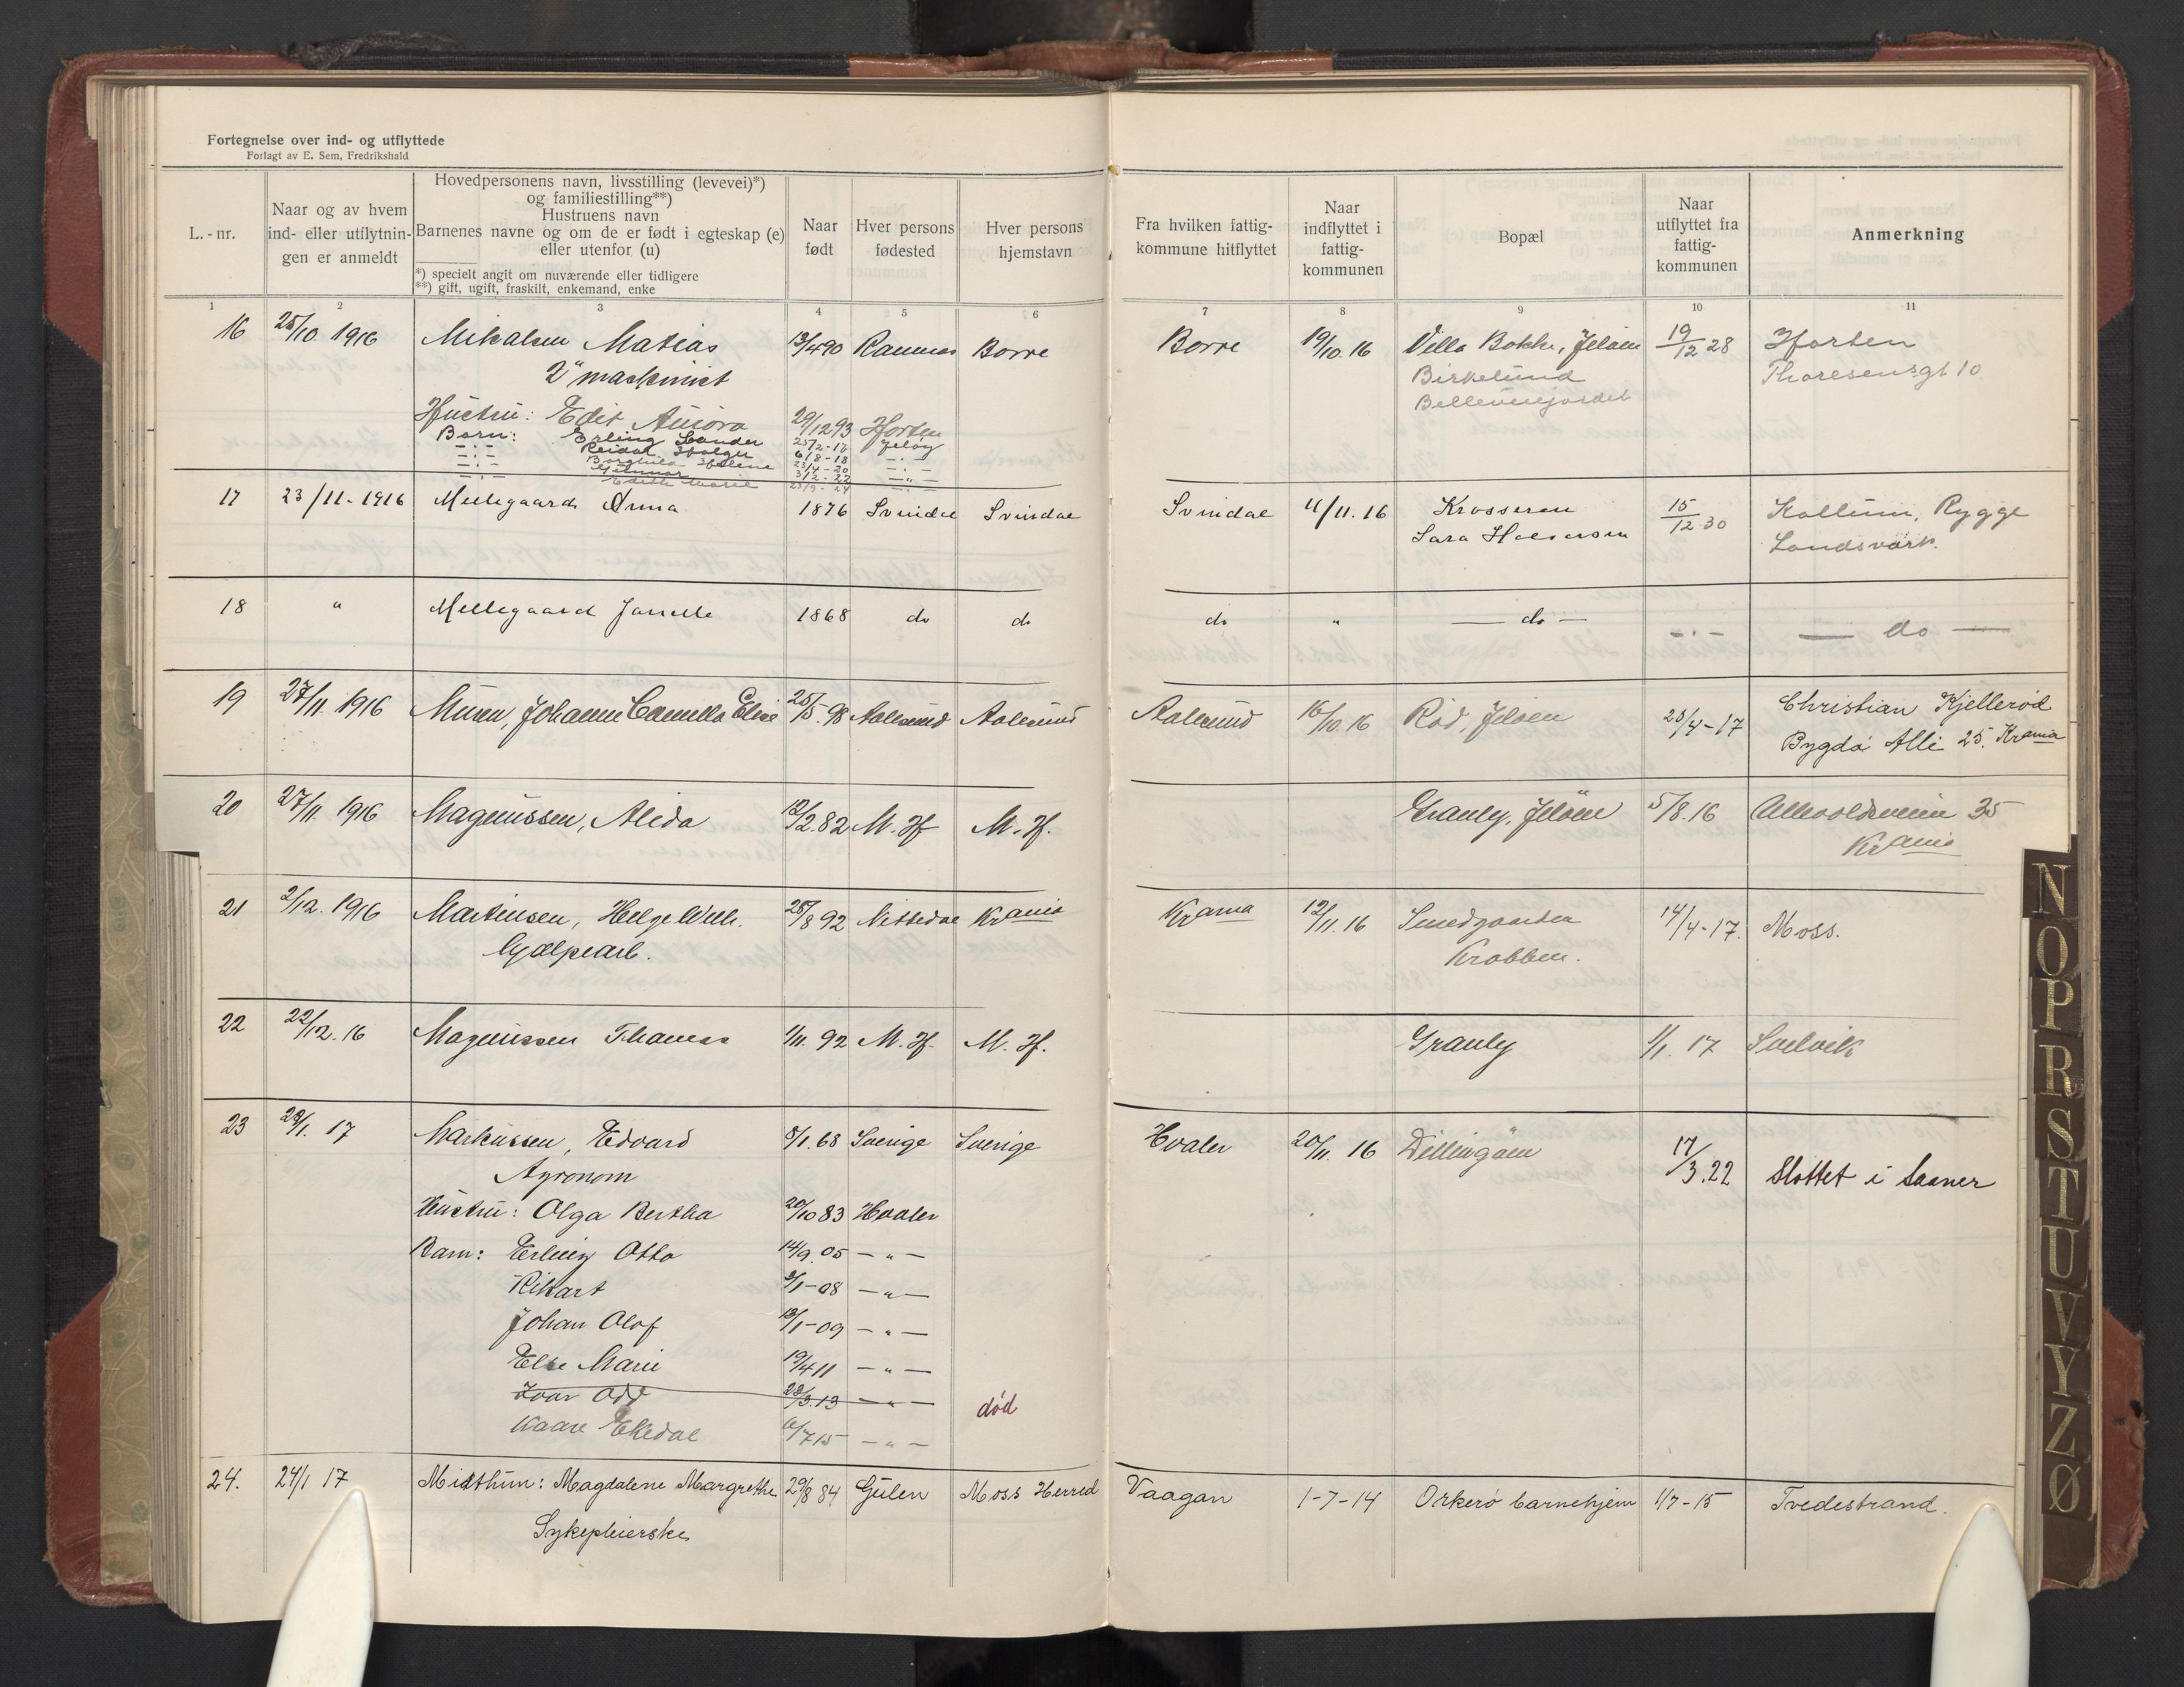 Fortegnelse over ind- og utflyttede
Forlagt av E. Sem, Fredrikshald
L.-nr.
Naar og av hvem
ind- eller utflytnin-
gen er anmeldt
Hovedpersonens navn, livsstilling (levevei)*)
og familiestilling**)
Hustruens navn
Barnenes navne og om de er født i egteskap (e)
eller utenfor (u)
*) specielt angit om nuværende eller tidligere
**) gift, ugift, fraskilt, enkemand, enke
Naar
født
Hver persons
fødested
Hver persons
hjemstavn
Fra hvilken fattig-
kommune hitflyttet
Naar
indflyttet i
fattig-
kommunen
Bopæl
Naar
utflyttet fra
fattig-
kommunen
Anmerkning
1 2 3 4 5 6 7 8 9 10 11
16 25/10 1916 Mikalsen Matias 13/4 90 Ramnes Borre Borre 19/10.16 Villa Bakke, Jeløen 19/12 28 Horten
2" maskinist Birkelund Thoresensgt 10
Bellevuejordet
Hustru: Edit Aurora 29/12 93 Horten
Barn: Erling Sander 25/2-16 Jeløy
—"— Reidar Holger 6/8-18 —"—
—"— Borghild Helene 23/4-20 —"—
—"— Gunnar 3/2-22 —"—
—"— Edith Marie
17 23/11-1916 Mellegaard Anna 1876 Svindal Svindal Svindal 4/11.16 Krosseren 15/12 30 Kallum, Rygge
Sara Halvorsen Landsvärk.
18 " Mellegaard Janelle 1868 do do do " — do — —"— — do —
19 27/11 1916 Muren, Johanne Camilla Elise 25/5.98 Aalesund Aalesund Aalesund 16/10.16 Rød, Jeløen 23/4-17 Christian Kjellerød
Bygdö Alle 25. Krania
20 27/11 1916 Magnussen, Alida 12/2.82 M. H M. H. Granly, Jeløen 5/8.16 35
Krania
21 2/12.1916 Martinsen, Helge Wilh. 25/8 92 Nittedal Krania Krania 12/11.16 Smedgaarden 14/4-17. Moss.
Hjælpearb. Krabben.
22 22/12.16 Magnussen Thomas 1/11.92 M. H. M. H. Granly 1/1.17 Svelvik
23 29/1.17 Markussen, Edvard 8/1.68 Sverige Sverige Hvaler 20/11.16 Dillingøen 17/3.22 Slottet i Saaner
Agronom
Hustru: Olga Bertha 20/10 83 Hvaler
Barn: Erling Otto 14/9.05 —"—
Rikart 2/1-08 —"—
Johan Olof 13/1-09 —"—
Else Marie 19/4 11 —"—
Ivar Odd 23/3.13 —"— død
Kaare Ekedal 6/7 15 —"—
24. 24/1 17 Midthun: Magdalene Margrethe 29/8 84 Gulen Moss Herred Vaagan 1-7-14 Orkerø barnehjem 1/7-15 Tvedestrand.
Sykepleierske
N
O
P
R
S
T
U
V
Y
Z
Ø